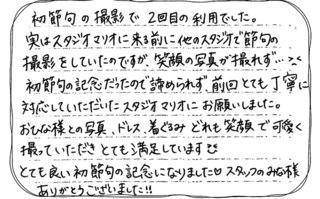 初節句の撮影で2回目の利用でした。
実はスタジオマリオに来る前に他のスタジオで節句の
撮影をしていたのですが、笑顔の写真が撮れず…><
初節句の記念だったので諦められず、前回とても丁寧に
対応していただいたスタジオマリオにお願いしました。
おひな様との写真、ドレス、着ぐるみどれも笑顔で可愛く
撮っていただきとても満足しています
とても良い初節句の記念になりました♡スタッフのみな様
ありがとうございました!!